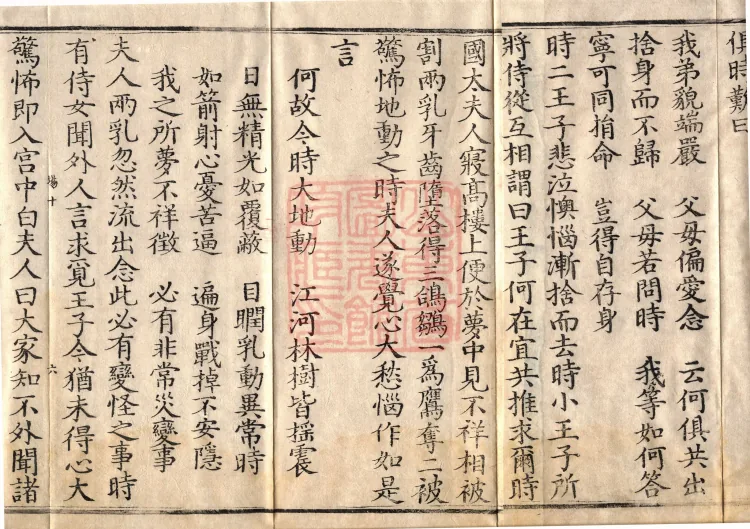 俱時歎曰
我弟貌端嚴　父母偏愛念　云何俱共出
捨身而不歸　父母若問時　我等如何答
寧可同捐命　豈得自存身
時二王子悲泣懊惱漸捨而去時小王子所
將侍從互相謂曰王子何在宜共推求爾時
國太夫人寢高樓上便於夢中見不祥相被
割兩乳牙齒墮落得三鴿鶵一為鷹奪二被
驚怖地動之時夫人遂覺心大愁惱作如是
言
何故今時大地動　江河林樹皆搖震
日無精光如覆蔽　目瞤乳動異常時
如箭射心憂苦逼　遍身戰掉不安隱
我之所夢不祥徵　必有非常災變事
夫人兩乳忽然流出念此必有變怪之事時
有侍女聞外人言求覓王子今猶未得心大
場十　六
驚怖即入宮中白夫人曰大家知不外聞諸